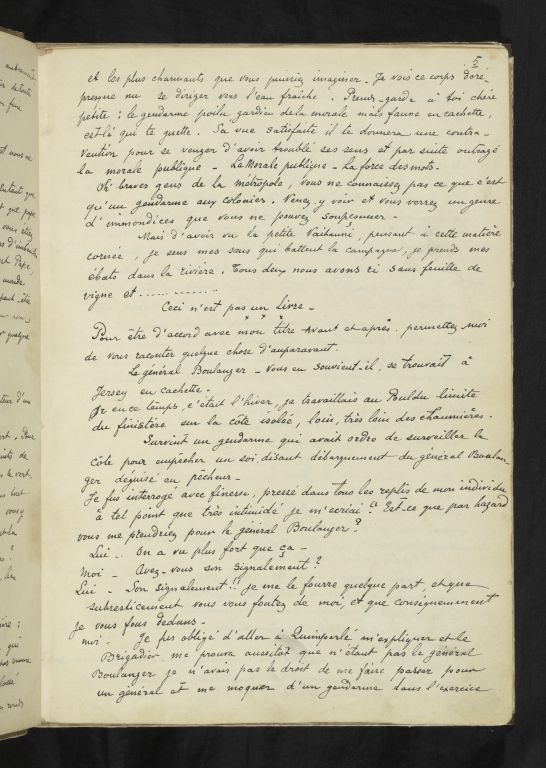 5
et les plus charmants que vous puissiez imaginer - Je vois ce corps doré
presque nu se diriger vers l'eau fraîche. Prends-garde à toi chère
petite ; le gendarme poilu gardien de la morale mais faune en cachette,
est là qui te guette. Sa vue satisfaite il te donnera une contra-
vention pour se venger d'avoir troublé ses sens et par suite outragé
la morale publique - La Morale publique - La force des mots.
Oh! braves gens de la métropole, vous ne connaissez pas ce que c'est
qu'un gendarme aux colonies. Venez y voir et vous verrez un genre
d'immondices que vous ne pouvez soupçonner -
Mais d'avoir vu la petite Vaitauni, pensant à cette matière
cornée, je sens mes sens qui battent la campagne, je prends mes
ébats dans la rivière. Tous deux nous avons ri sans feuille de
vigne et ...............
Ceci n'est pas un livre -
x x x
Pour être d'accord avec mon titre Avant et après. permettez moi
de vous raconter quelque chose d'auparavant.
Le général Boulanger - vous en souvient-il, se trouvait à
Jersey en cachette -
Or en ce temps, c'était l'hiver, je travaillais au Pouldu limite
du finistère sur la côte isolée, loin, très loin des chaumières.
Survint un gendarme qui avait ordre de surveiller la
côte pour empêcher un soi, disant débarquement du général Boulan-
ger déguisé en pêcheur -
Je fus interrogé avec finesse, pressé dans tous les replis de mon individu
à tel point que très intimidé je m'écriai !! Est-ce que par hazard
vous me prendriez pour le général Boulanger ?
Lui - On a vu plus fort que ça -
Moi - Avez-vous son signalement ?
Lui - Son signalement !! je me le fourre quelque part, et que
subresticement vous vous foutez de moi, et que conséquemment
je vous fous dedans -
moi - Je fus obligé d'aller à Quimperlé m'expliquer et le
Brigadier me prouva aussitôt que n'étant pas le général
Boulanger je n'avais pas le droit de me faire passer pour
un général et me moquer d'un gendarme dans l'exercice